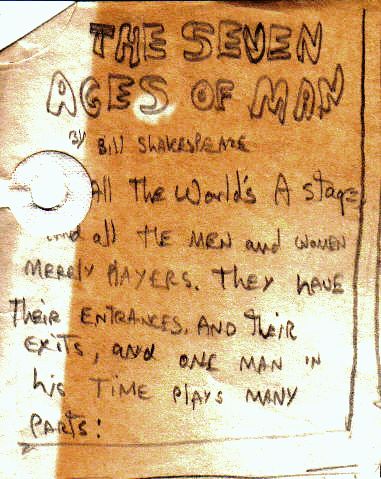 THE SEVEN
AGES OF MAN
By Bill SHAKESPEARE
All The World's A stage,
and all THE MEN and women
MERELY PLAYERS. They HAVE
Their ENTRANCES, AND their
EXITS, and ONE MAN IN
his TIME PlAYS MANY
PARTS: